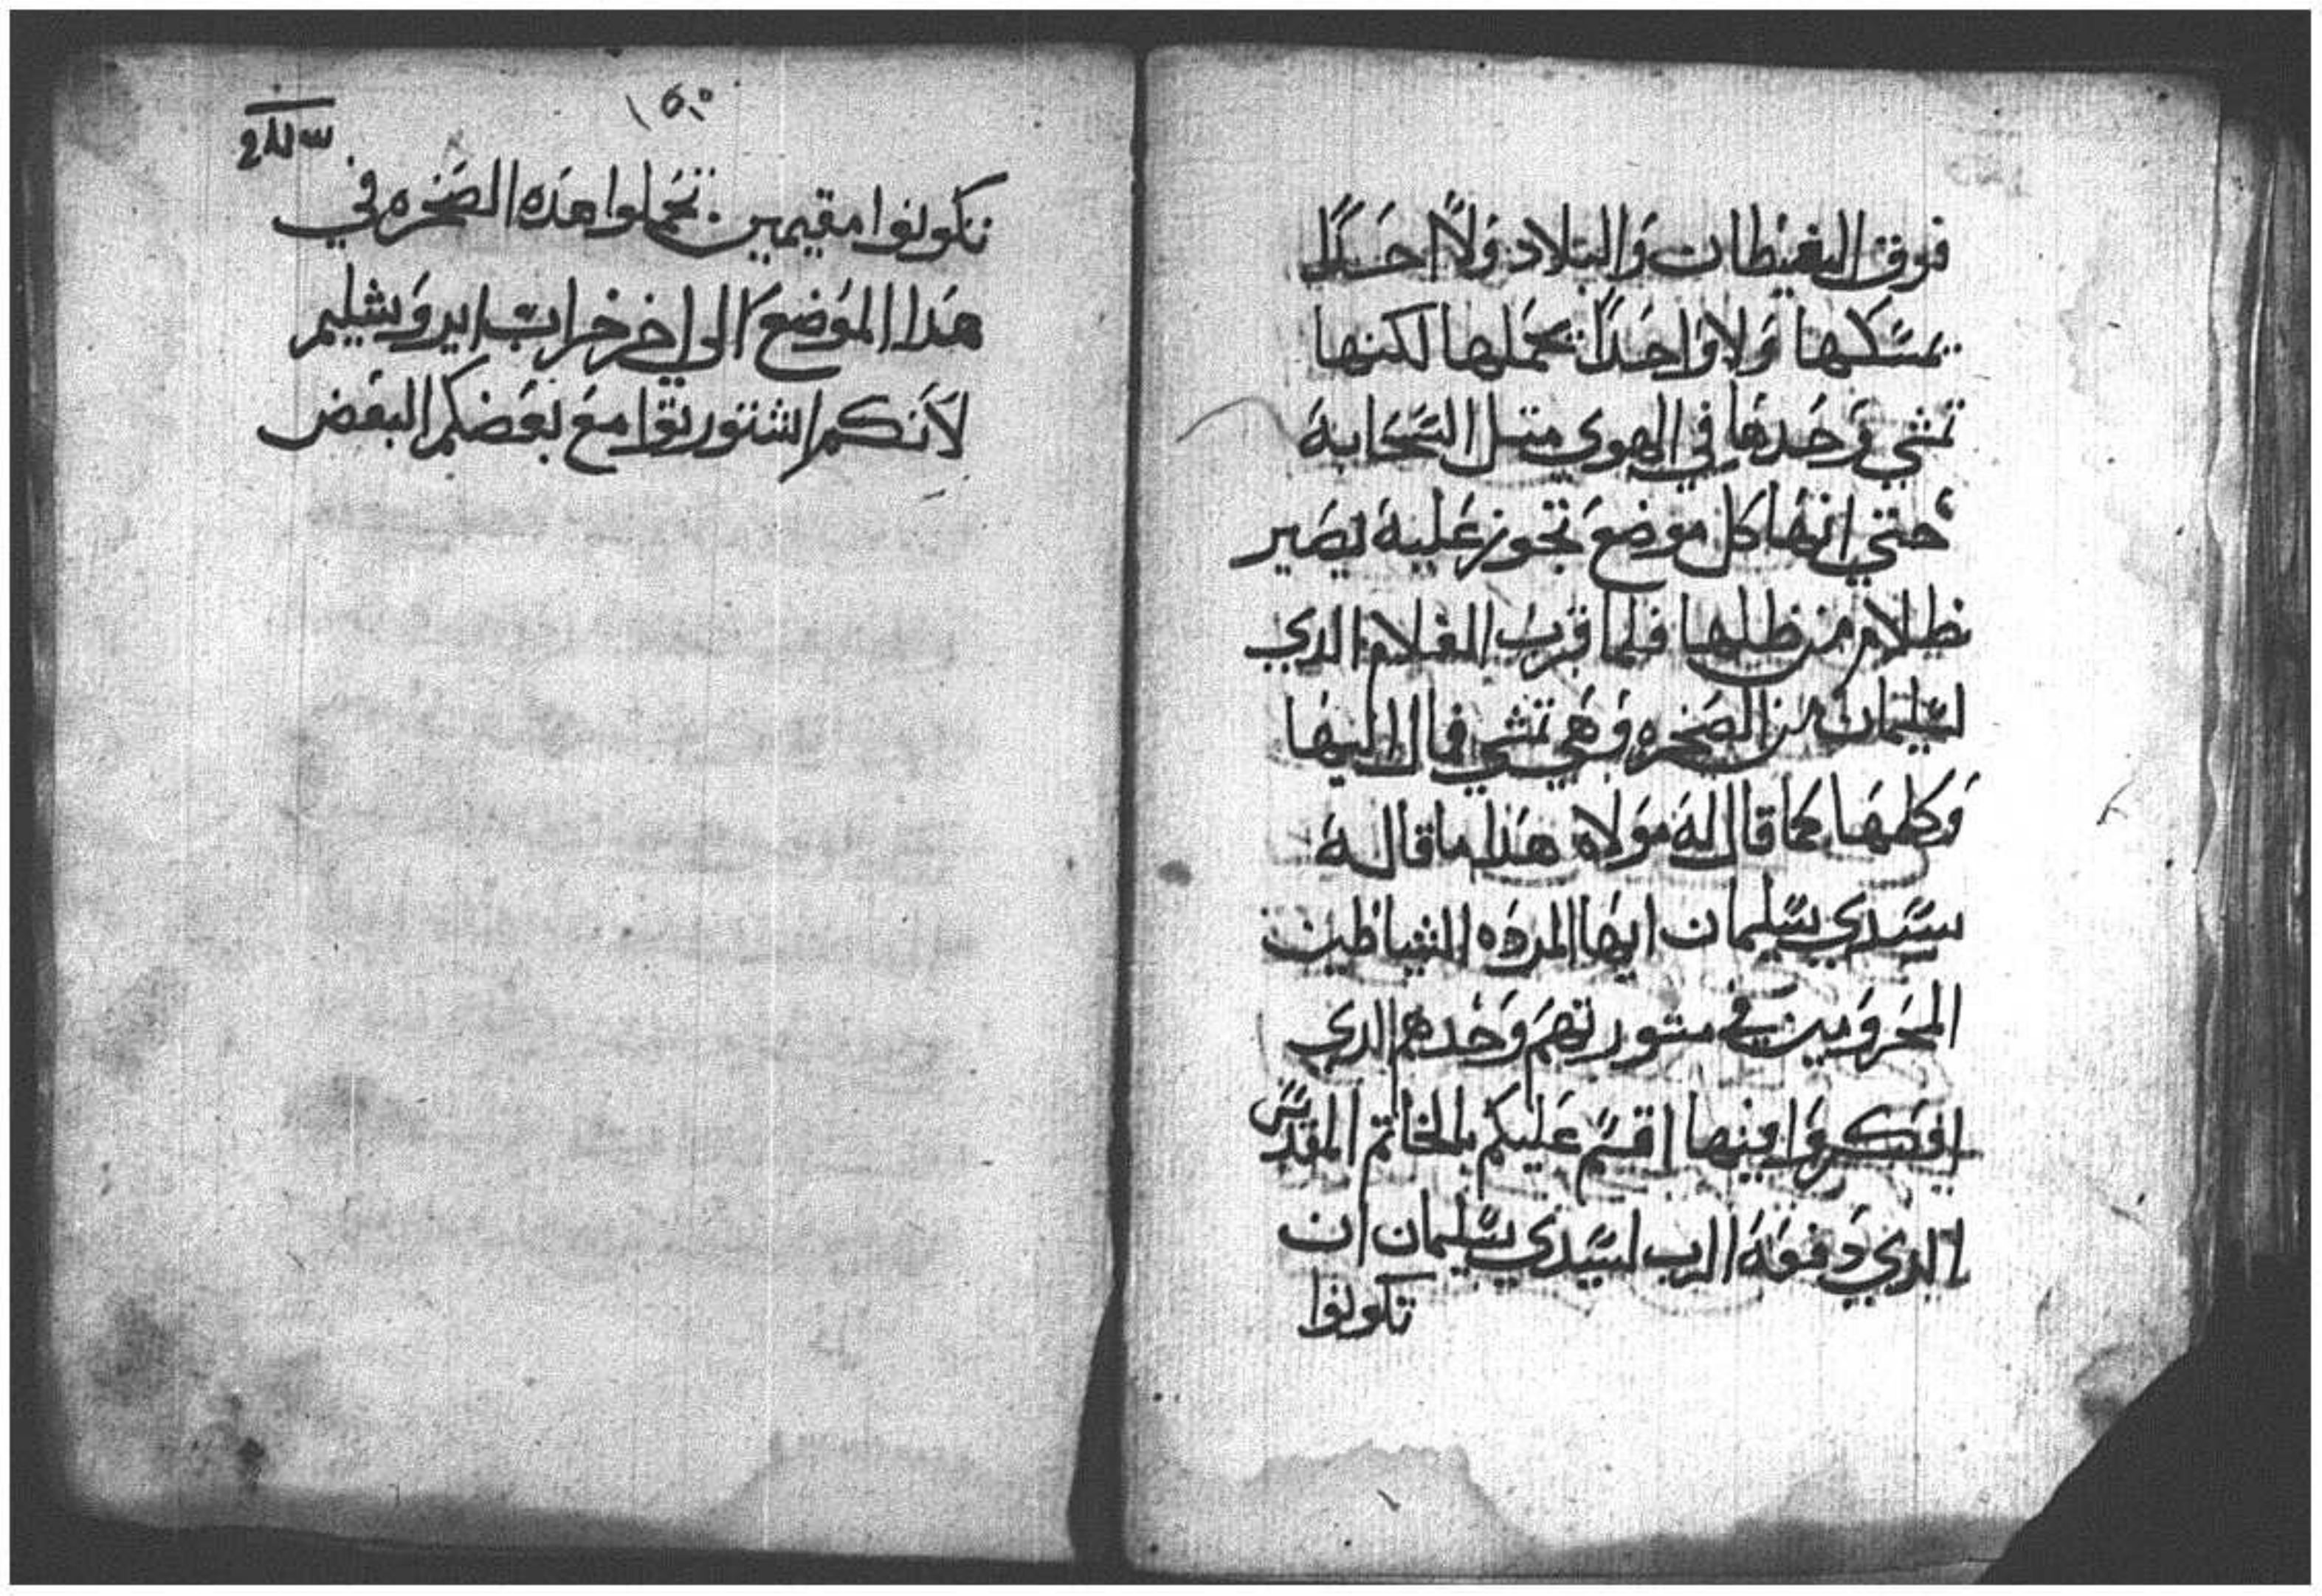 فوق الغيطان والبلاد ولا احدًا
يمسكها ولا واحدًا يحملها لكنها
تمشي وحدها في الهوي متل السحابة
حتي انها كل موضع تجوز علية يصير
ظلام من ظلها فلما قرب الغلام الدي
لسليمان من الصخره وهي تمشي قال اليها
وكلمها كما قال لة مولاة هذا ما قالة
سيدي سليمان ايها المرده الشياطين
المحرومين في مشورتهم وحدهم الدي
افتكروا فيها اقسم عليكم بالخاتم المقدس
الدي دفعة الرب لسيدي سليمان ان
تكونوا
تكونوا مقيمين تحملوا هده الصخره في
هدا الموضع الي اخر خراب ايروشليم
لانكم اشتورتوا مع بعضكم البعض